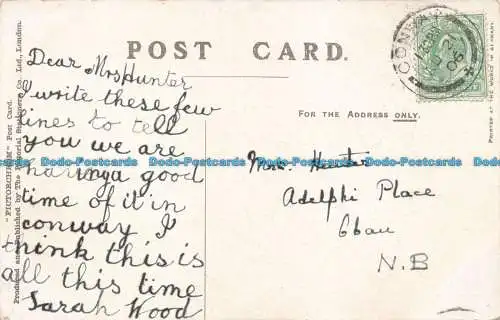 POST CARD.
FOR THE ADDRESS ONLY.
"PICTORCHROM" Post Card.
Produced and Published by The Pictorial Stationery Co., Ltd., London.
PRINTED AT THE WORKS IN
CONWAY
Dear Mrs Hunter
I write these few
lines to tell
you we are
having a good
time of it in
conway I
think this is
all this time
Sarah Wood
Mrs. Hunter
Adelphi Place
N.B
Dodo-Postcards Dodo-Postcards Dodo-Postcards Dodo-Postcards Dodo-Postcards